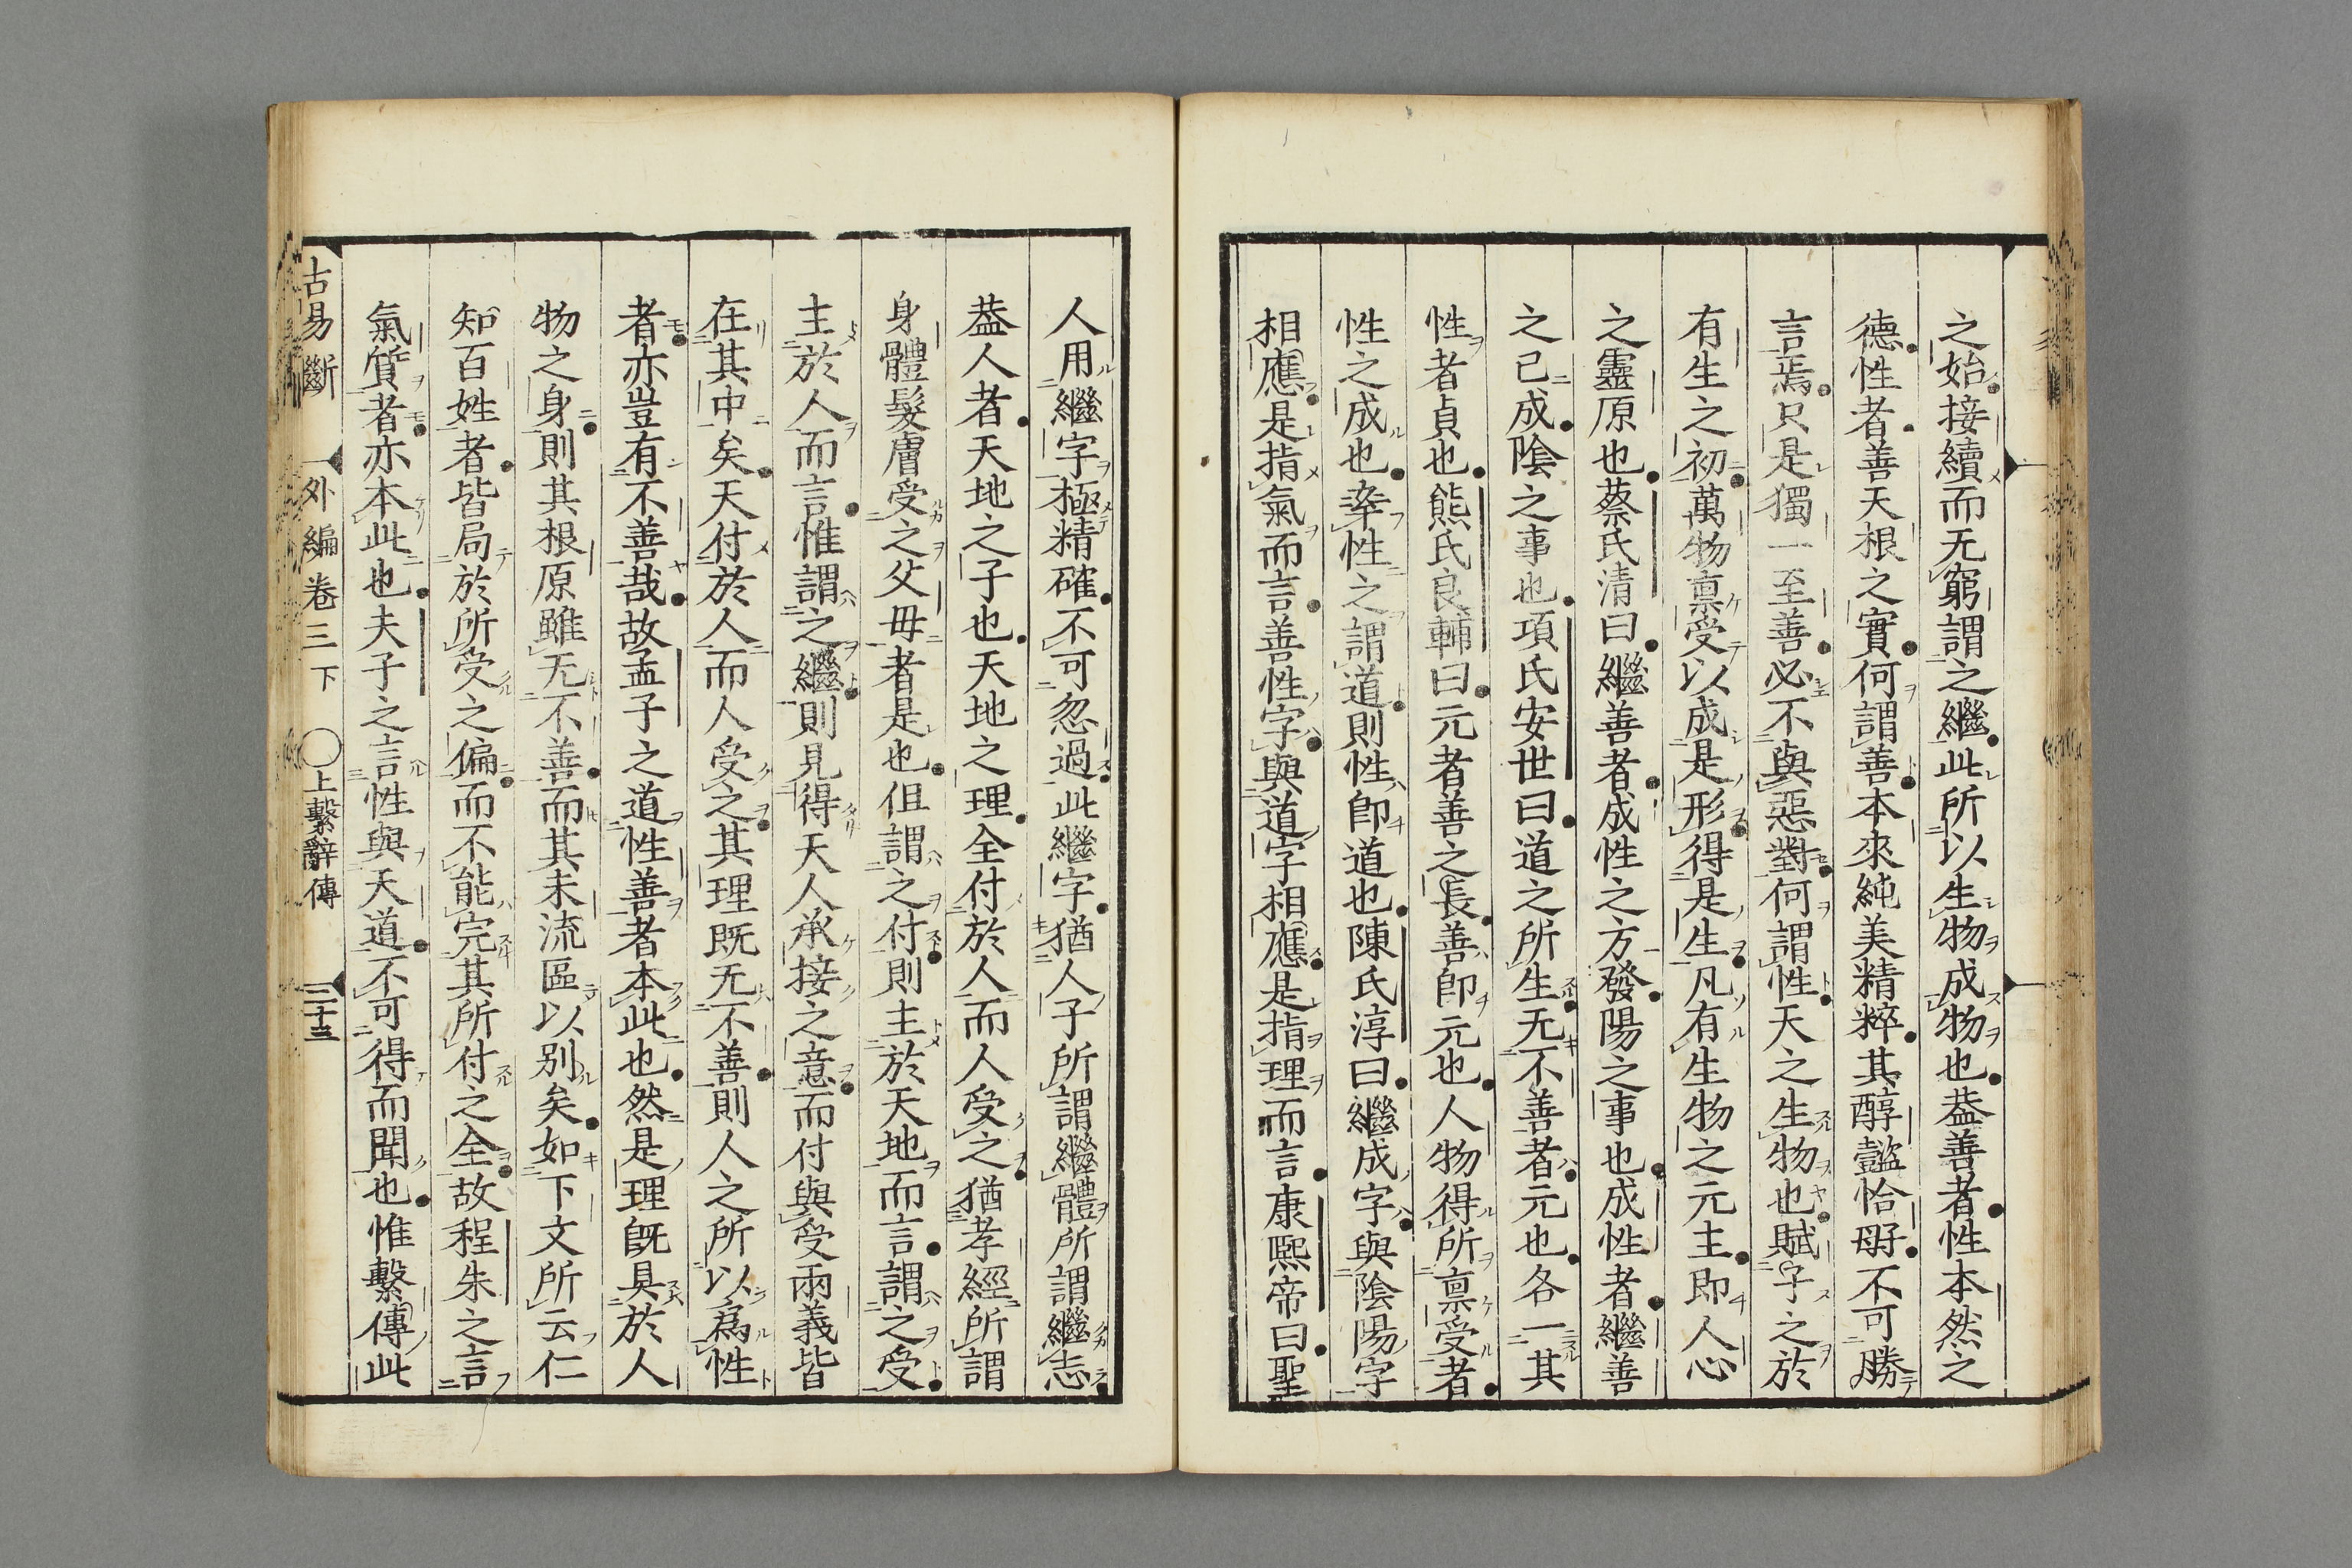 之始接續而无窮謂之繼此所以生物成物也葢善者性本然之
德性者善天根之實何謂善本來純美精粹其醇懿恰好不可勝
言焉只是獨一至善必不與惡對何謂性天之生物也賦予之於
有生之初萬物禀受以成是形得是生凡有生物之元主即人心
之靈原也蔡氏清曰繼善者成性之方發陽之事也成性者繼善
之已成陰之事也項氏安世曰道之所生无不善者元也各一其
性者貞也熊氏良輔曰元者善之長善即元也人物得所禀受者
性之成也率性之謂道則性即道也陳氏淳曰繼成字與陰陽字
相應是指氣而言善性字與道字相應是指理而言康熙帝曰聖
人用繼字極精確不可忽過此繼字猶人子所謂繼體所謂繼志
葢人者天地之子也天地之理全付於人而人受之猶孝經所謂
身體髮膚受之父母者是也但謂之付則主於天地而言謂之受
主於人而言惟謂之繼則見得天人承接之意而付與受兩義皆
在其中矣天付於人而人受之其理既无不善則人之所以為性
者亦豈有不善哉故孟子之道性善者本此也然是理既具於人
物之身則其根原雖无不善而其末流區以别矣如下文所云仁
知百姓者皆局於所受之偏而不能完其所付之全故程朱之言
氣質者亦本此也夫子之言性與天道不可得而聞也惟繫傳此
古易斷 外編卷三下 ○上繫辭傳 二十三